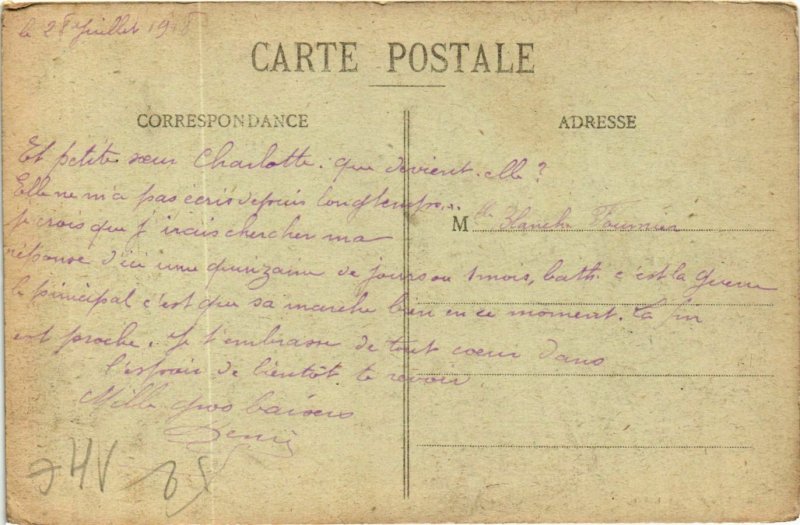 le 28 Juillet 1918
CARTE POSTALE
CORRESPONDANCE
ADRESSE
Et petite sœur Charlotte. que devient-elle ?
Elle ne m'a pas écris depuis longtemps...
Je crois que j'irais chercher ma
réponse d'ici une quinzaine de jours ou 1 mois, bath. c'est la guerre
le principal c'est que sa marche bien en ce moment. La fin
est proche. Je t'embrasse de tout cœur dans
l'espoir de bientôt te revoir
Mille gros baisers
M lle Blanche Fournier